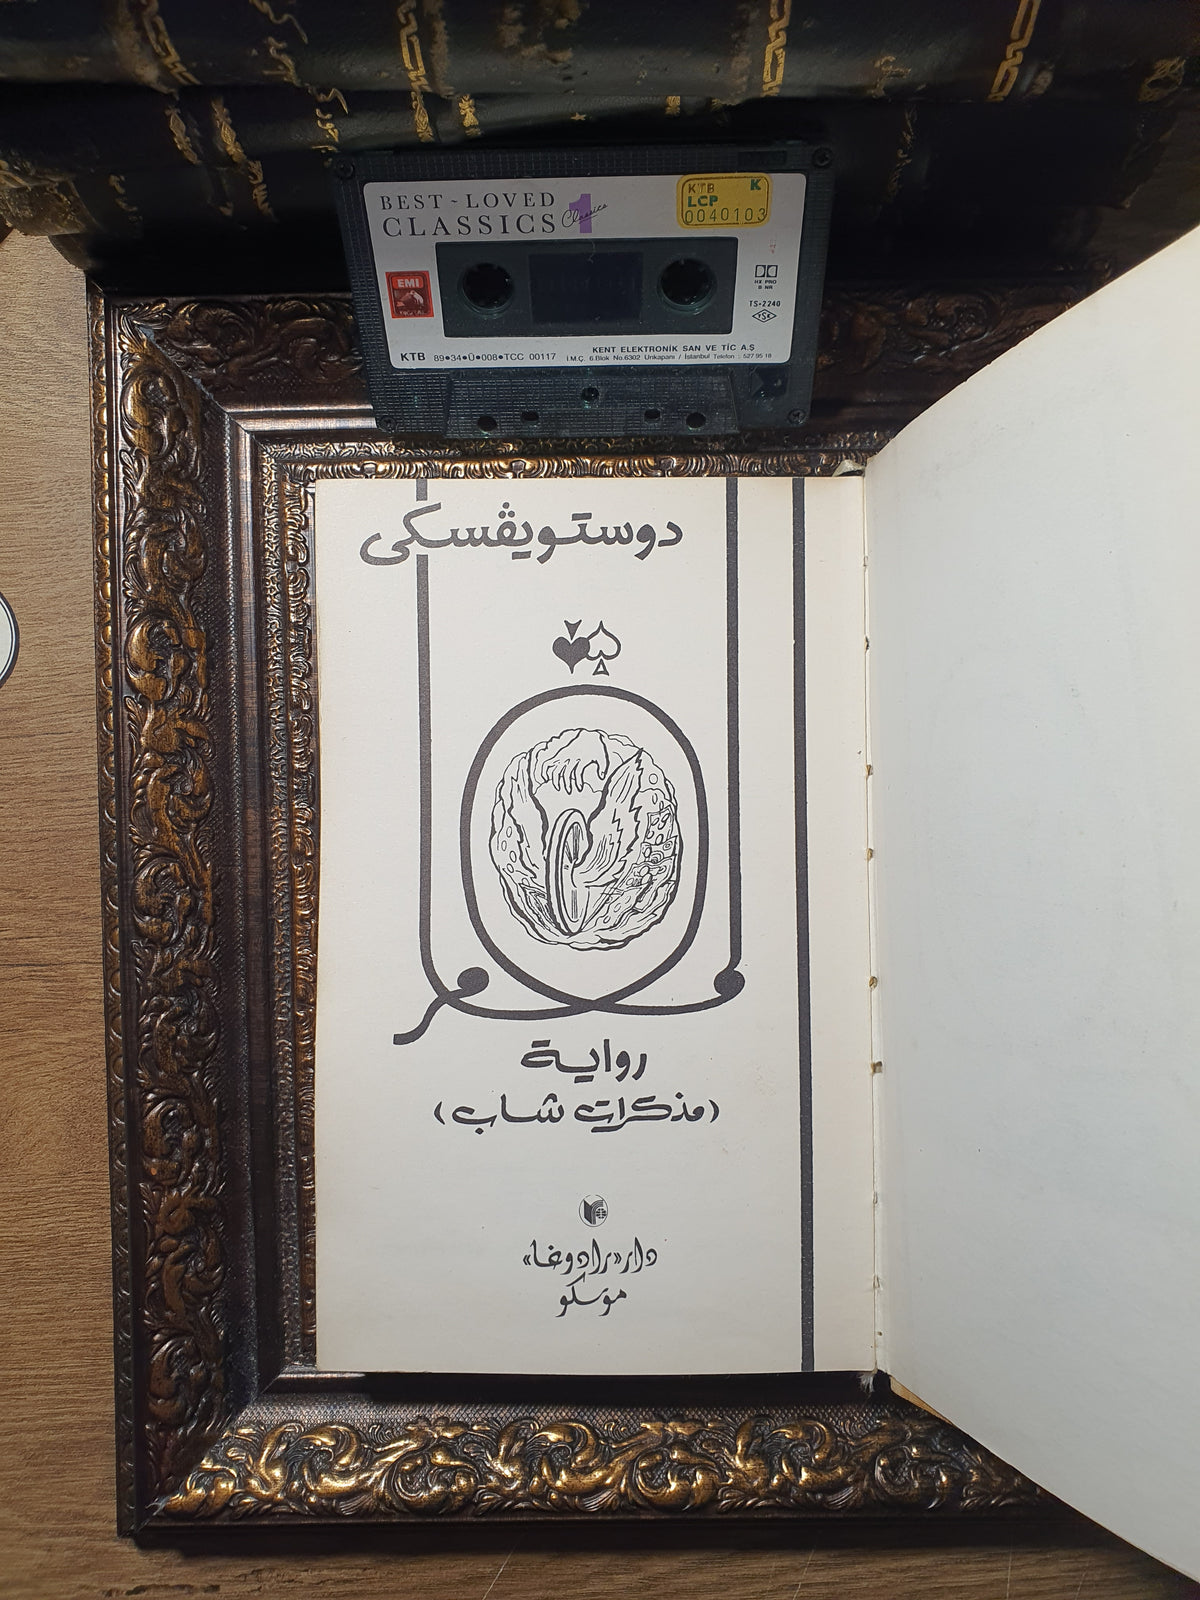 BEST ~ LOVED
CLASSICS 1
Classics
KTB K
LCP
0040103
EMI
DIGITAL
HX PRO
B NR
TS•2240
TSE
KENT ELEKTRONİK SAN VE TİC A.Ş
KTB 89•34•Ü•008•TCC 00117 İ.M.Ç. 6.Blok No.6302 Unkapanı / İstanbul Telefon : 527 95 18
دوستويڤسكي
رواية
(مذكرات شاب)
دار «رادوغا»
موسكو